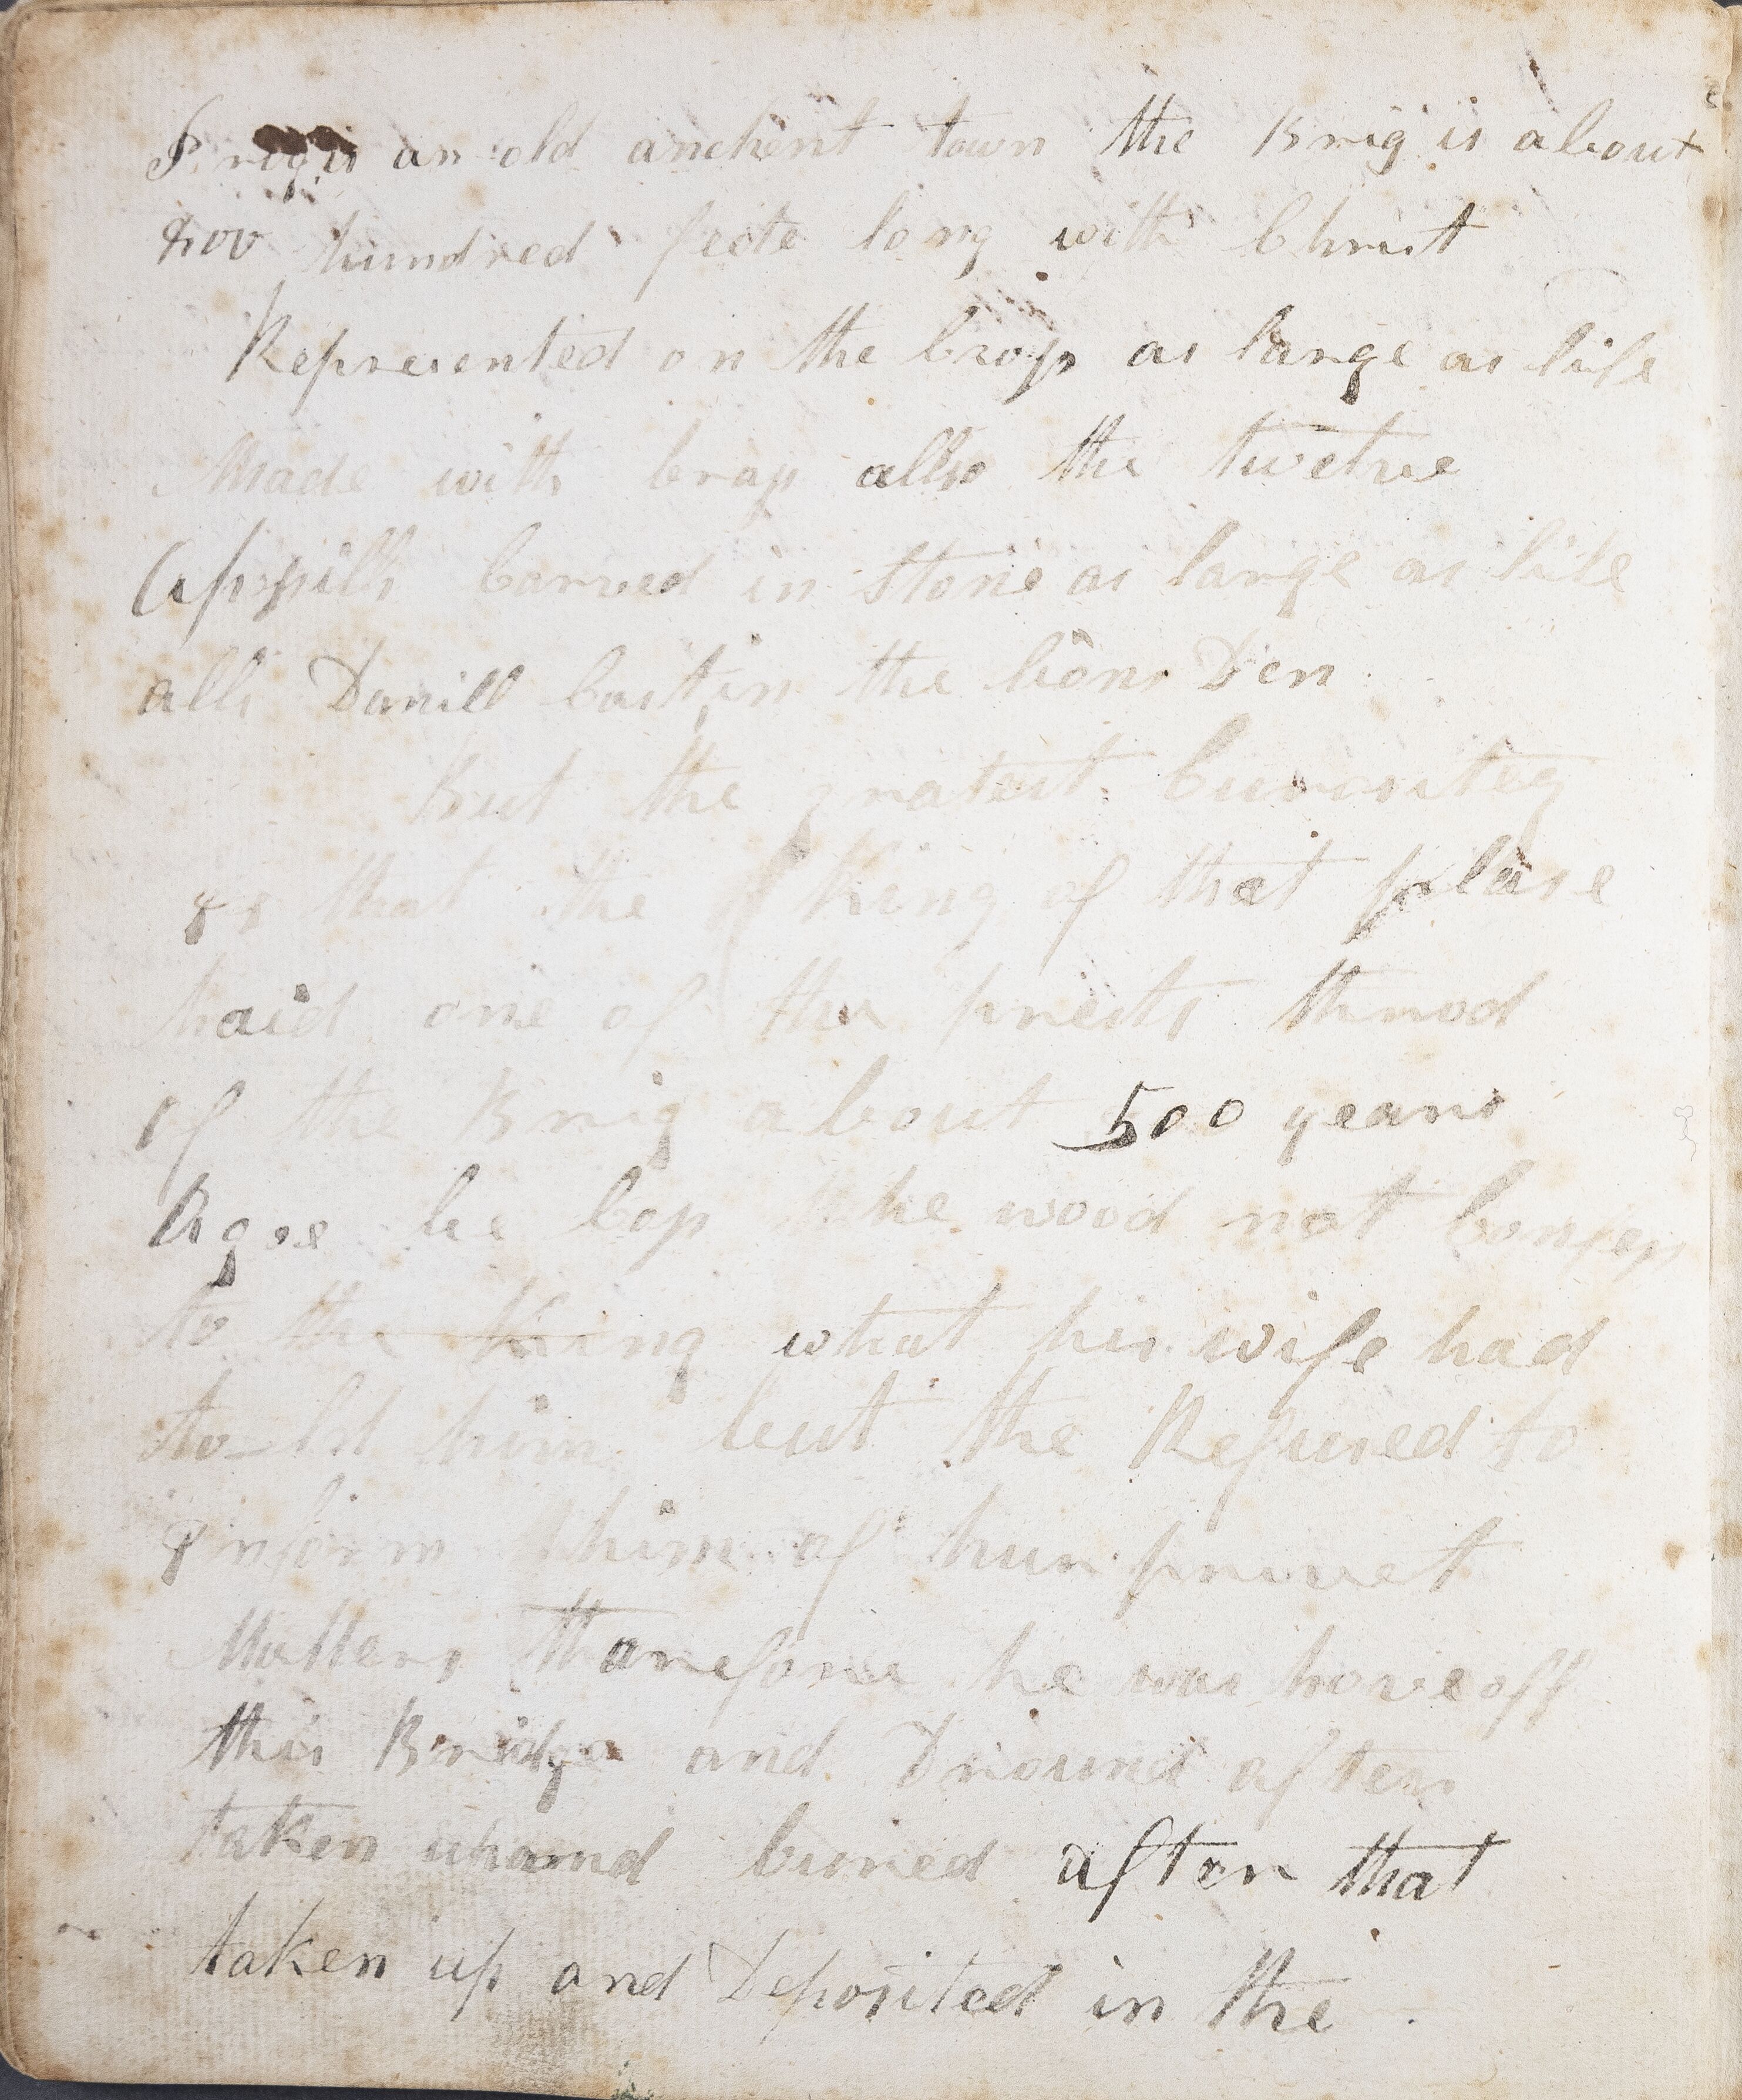 Prag is an old anchent town the Brig is about
hundred feete long with Christ
Represented on the Cross as large as life
Made with brass allso the twelve
Appills Carved in Stone as large as life
alls Daniel Cast in the lions Den
But the gratest Curositey
is that the King of that plase
haid one of the preists throd
of the Brig about 500 years
Agoe be Cos he wood not Confess
to the King what his wife had
to-ld him but he Refused to
inform him of hur privet
Matters tharefore he was hove off
this Bridge and Dround after
taken up and buried after that
taken up and Deposited in the